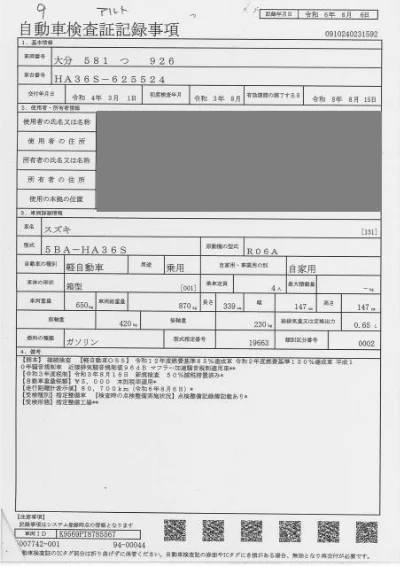 9 アルト
記録年月日 令和 6年 8月 6日
自動車検査証記録事項
0910240231592
1.基本情報
車両番号 大分 581 つ 926
車台番号 HA36S-625524
交付年月日 令和 4年 3月 1日 初度検査年月 令和 3年 8月 有効期間の満了する日 令和 8年 8月 15日
2.使用者・所有者情報
使用者の氏名又は名称
使用者の住所
所有者の氏名又は名称
所有者の住所
使用の本拠の位置
3.車両詳細情報
車名 スズキ [131]
型式 5BA-HA36S 原動機の型式 R06A
自動車の種別 軽自動車 用途 乗用 自家用・事業用の別 自家用
車体の形状 箱型 [001] 乗車定員 4人 最大積載量 -kg
車両重量 650kg 車両総重量 870kg 長さ 339cm 幅 147cm 高さ 147cm
前軸重 420kg 後軸重 230kg 総排気量又は定格出力 0.65 L
燃料の種類 ガソリン 型式指定番号 19663 類別区分番号 0002
4.備考
【軽自動車OSS】 令和12年度燃費基準85%達成車 令和2年度燃費基準130%達成車 平成1
0年騒音規制車 近接排気騒音規制値96dB マフラー加速騒音規制適用車**
【自動車重量税額】¥5,000 本則税率適用*
【走行距離計表示値】80,700km(令和6年8月6日)*
【受検種別】指定整備車 【検査時の点検整備実施状況】点検整備記録簿記載あり*
【受検形態】指定整備工場**
【注意事項】
記録事項はシステム登録時点の情報となります
車両ID K9669PT8785567
007742-001 94-00044